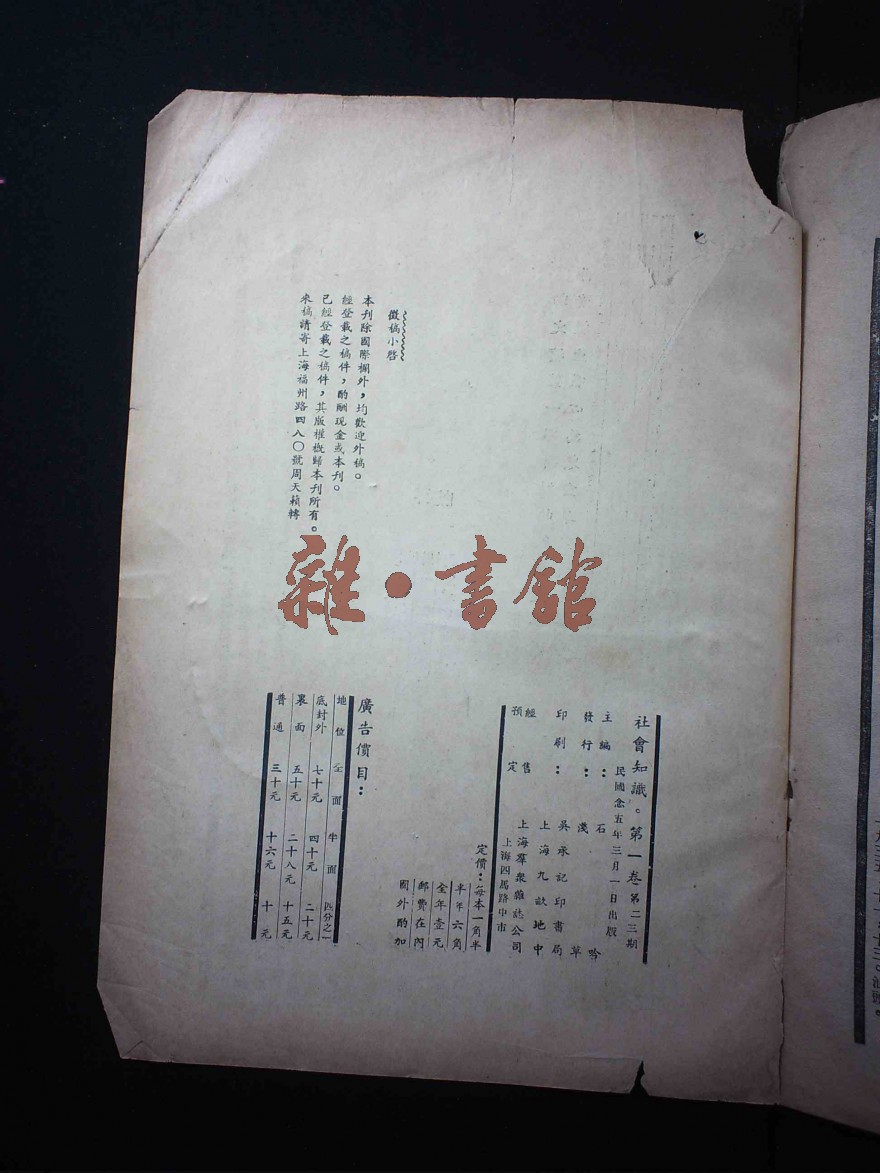 徵稿小啓
本刋除國際欄外，均歡迎外稿。
經登載之稿件，酌酬現金或本刋。
已經登載之稿件，其版權概歸本刋所有。
來稿請寄上海福州路四八〇號周天籟轉
雜·書館
社會知識。第一卷第二三期
民國念五年三月一日出版
主編：石吟
發行：淺草
印刷：吳承記印書局
上海九畝地中
經售
預定
上海羣衆雜誌公司
上海四馬路中市
定價：每本一角半
半年六角
全年壹元
郵費在內
國外酌加
廣告價目：
地位 全面 半面 四分之一
底封外 七十元 四十元 二十元
裏面 五十元 二十八元 十五元
普通 三十元 十六元 十元